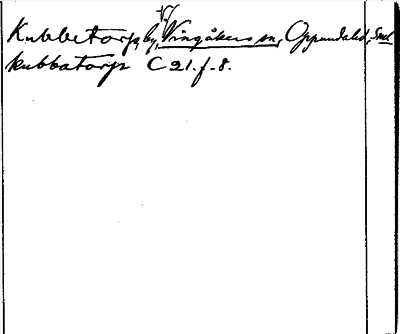 V
Kubbetorp, by, Vingåkers sn, Oppunda hd, Söd
kubbatorp C 21. f. 8.